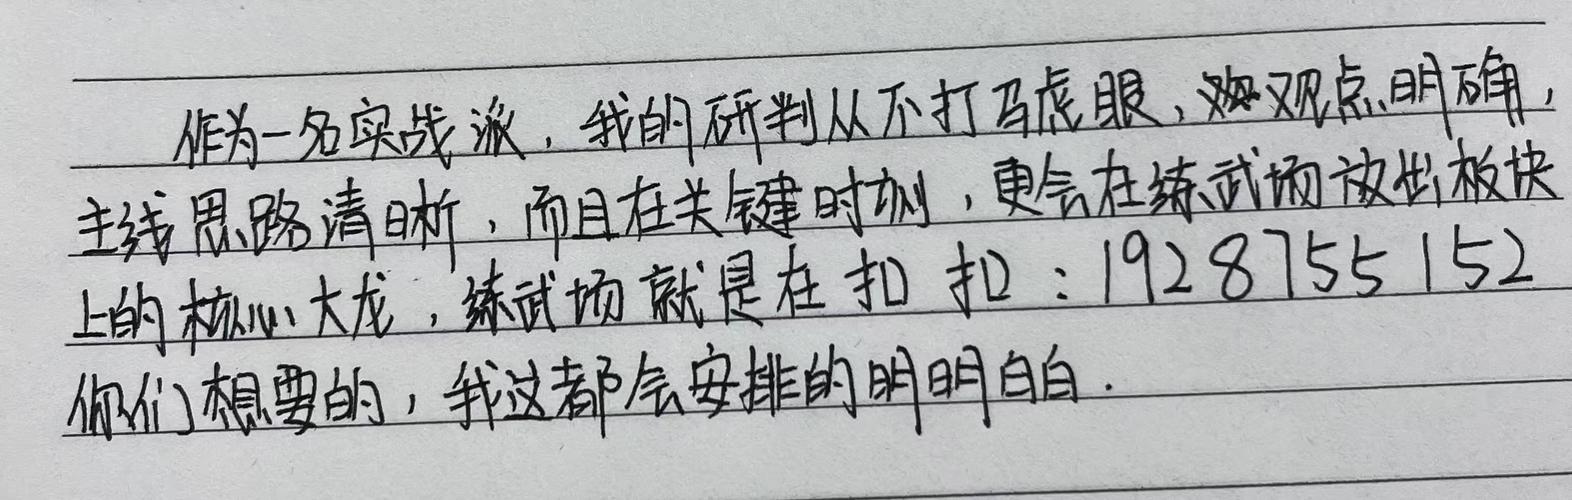 作为一名实战派，我的研判从不打马虎眼、观点明确，
主线思路清晰，而且在关键时刻，更会在练武场放出板块
上的核心大龙，练武场就是在扣扣：1928755152
你们想要的，我这都会安排的明明白白.